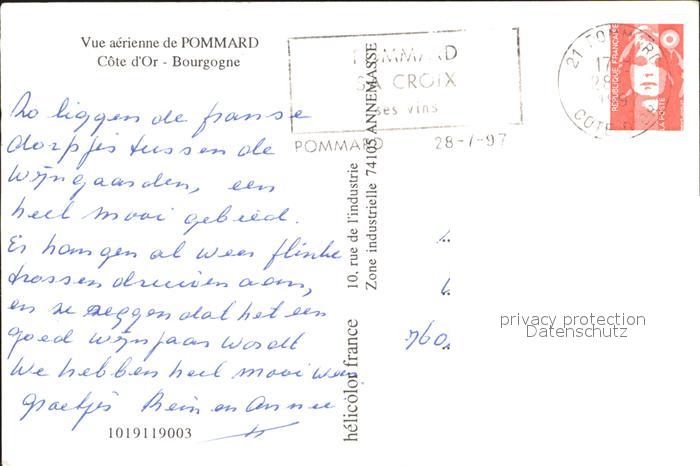 Vue aérienne de POMMARD
Côte d'Or - Bourgogne
POMMARD
SA CROIX
ses vins
POMMARD 28-7-97
21 POMMARD
COTE D'OR
RÉPUBLIQUE FRANÇAISE
LA POSTE
Zo liggen de franse
dorpjes tussen de
wijngaarden, een
heel mooi gebied.
Er hangen al weer flinke
trossen druiven aan,
en ze zeggen dat het een
goed wijnjaar wordt
We hebben heel mooi weer
groetjes Rein en Annie
1019119003
hélicolor france
10, rue de l'industrie
Zone industrielle 74105 ANNEMASSE
760
privacy protection
Datenschutz